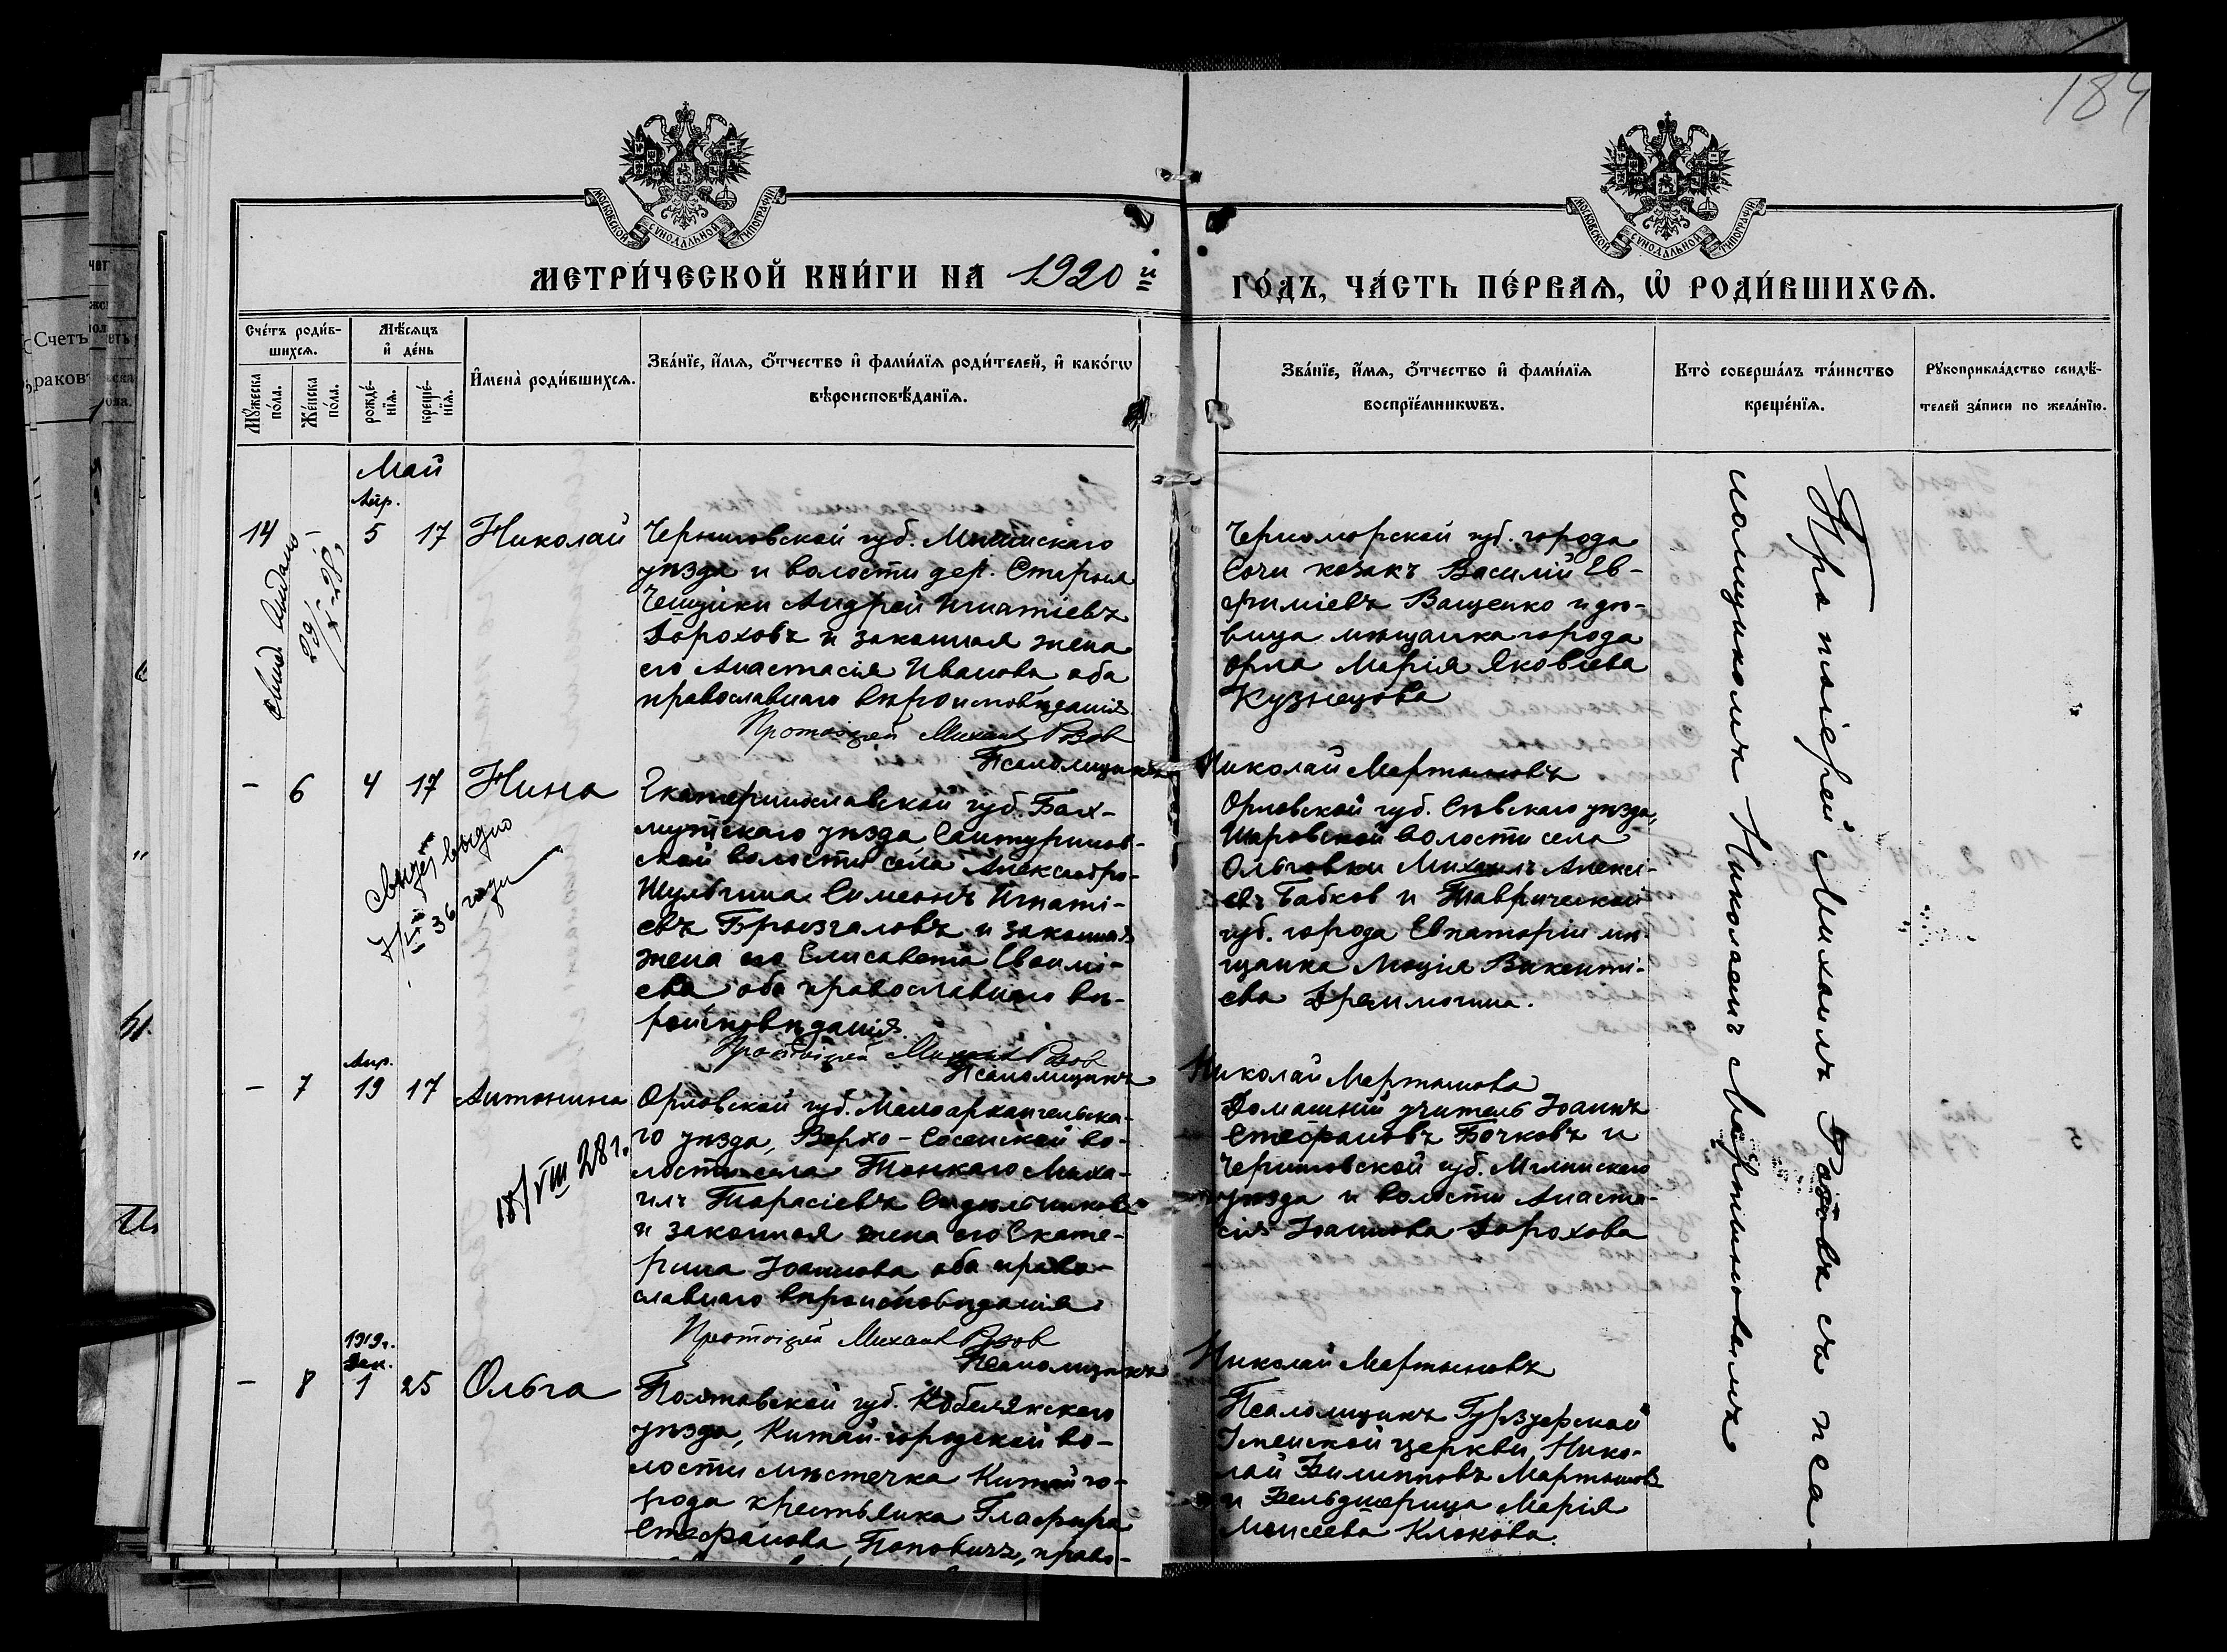 184
МОСКОВСКОЙ СУНОДАЛЬНОЙ ТИПОГРАФІИ
МОСКОВСКОЙ СУНОДАЛЬНОЙ ТИПОГРАФІИ
МЕТРИ́ЧЕСКОЙ КНИ́ГИ НА 1920 й
ГО́ДЪ, ЧА́СТЬ ПЕ́РВАѦ, Ѡ҆ РОДИ́ВШИХСѦ.
Сче́тъ роди́в-
шихсѧ.
Мѣ́сѧцъ
и҆ де́нь
Мꙋ́жеска
по́ла.
Же́нска
по́ла.
рожде́-
нїѧ.
креще́-
нїѧ.
И҆мена̀ роди́вшихсѧ.
Зва́нїе, и҆́мѧ, ѻ҆́тчество и҆ фами́лїѧ роди́телей, и҆ како́гѡ
вѣроисповѣ́данїѧ.
Зва́нїе, и҆́мѧ, ѻ҆́тчество и҆ фами́лїѧ
воспрїе́мникѡвъ.
Кто̀ соверша́лъ та́инство
креще́нїѧ.
Рꙋкоприкла́дство свидѣ́-
телей за́писи по жела́нїю.
Счетъ
Май
Апр.
14 5 17 Николай
Черниговской губ. Мглинскаго
уѣзда и волости дер. Старыя
Чешуйки Андрей Игнатіевъ
Дороховъ и законная жена
его Анастасія Иванова, оба
православнаго вѣроисповѣданія.
Протоіерей Михаилъ Розов
Псаломщикъ Николай Мартыновъ
Черноморской губ. города
Сочи козакъ Василій Ев-
фиміевъ Ващенко и дѣ-
вица мѣщанка города
Орла Марія Яковлева
Кузнецова
29/X-28
- 6 4 17 Нина
Екатеринославской губ. Бах-
мутскаго уѣзда Сантуринов-
ской волости села Александро-
Шульгина Симеонъ Игнаті-
евъ Брызгаловъ и законная
жена его Елисавета
ева оба православнаго вѣ-
роисповѣданія.
Протоіерей Михаилъ Розов
Псаломщикъ Николай Мартынова
Орловской губ. Сѣвскаго уѣзда,
Шаровской волости села
Ольговки Михаилъ Алексі-
евъ Бабков и Таврической
губ. города Евпаторіи мѣ-
щанка Викенті-
ева
свидѣт. выдно
36 года
Апр.
- 7 19 17 Антонина
Орловской губ. Малоархангельска-
го уѣзда, Верхо-Сосенской во-
лости села Тонкаго Миха-
илъ Тарасіевъ Сидельниковъ
и законная жена его Екате-
рина Іоаннова оба право-
славнаго вѣроисповѣданія.
Протоіерей Михаилъ Розов
Псаломщикъ Николай Мартыновъ
Домашній учитель Іоаннъ
Стефановъ Бочковъ и
Черниговской губ. Мглинскаго
уѣзда и волости Анаста-
сія Іоаннова Дорохова
18/VIII 28 г.
1919 г.
Дек.
- 8 1 25 Ольга
Полтавской губ. Кобелякскаго
уѣзда, Китай-городской во-
лости мѣстечка Китай го-
рода крестьянка Гласфира
Стефанова Поповичъ, право-
Псаломщикъ Гурзуфской
Успенской церкви, Нико-
лай Филипповъ Мартыновъ
и Фельдшерица Марія
Моисеева Клокова.
Протоіерей Михаилъ Розовъ съ пса-
ломщикомъ Николаемъ Мартыновымъ